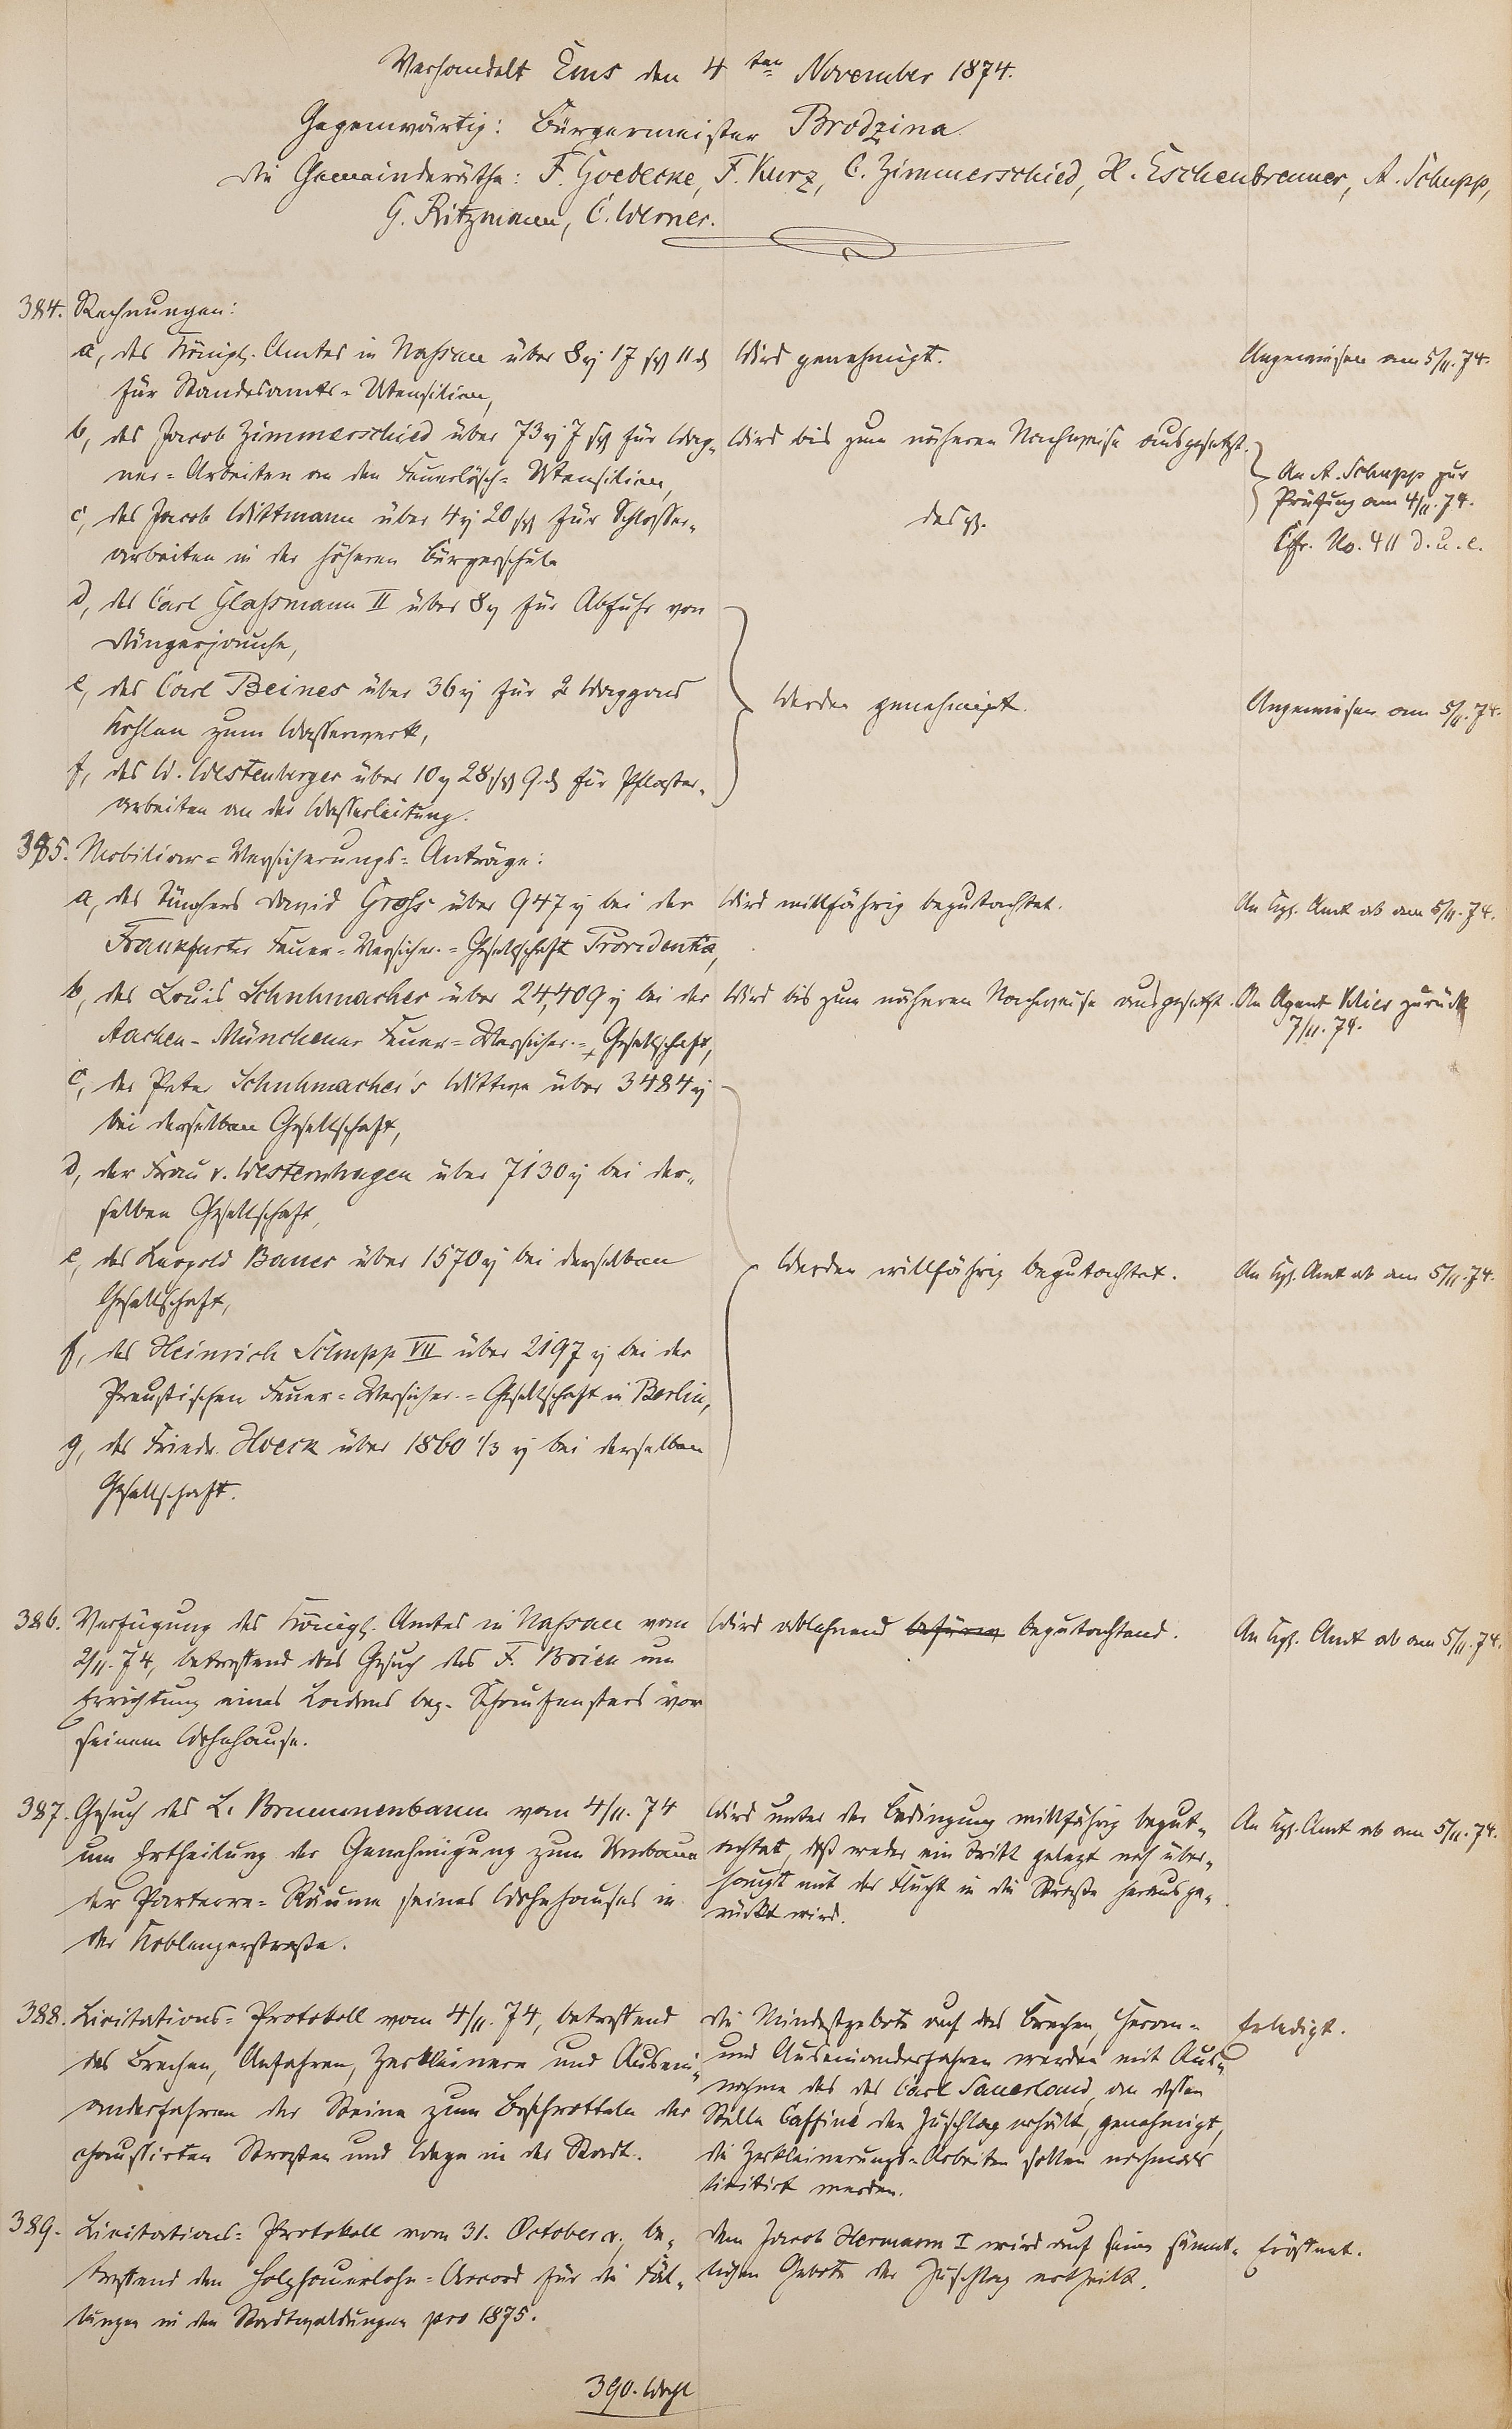 Verhandelt Ems den 4ten November 1874.
Gegenwärtig: Bürgermeister Brodzina
die Gemeinderäthe: F. Goedecke, F. Kurz, C. Zimmerschied, H. Eschenbrenner, A. Schupp,
G. Ritzmann, C. Werner.
384. Rechnungen:
a, des Königl. Amtes in Nassau über 8 17 11
für Standesamts-Utensilien,
Wird genehmigt.
Angewiesen am 5/11. 74.
b, des Jacob Zimmerschied über 73 7 für Wag-
ner-Arbeiten an den Feuerlösch-Utensilien,
Wird bis zum näheren Nachweise ausgesetzt.
c, des Jacob Wittmann über 4 20 für Schlosser-
arbeiten in der höheren Bürgerschule
desgl.
An A. Schupp zur
Prüfung am 4/11. 74.
Cfr. No. 411 d. u. e.
d, des Carl Glassmann II über 8 für Abfuhr von
Düngerjauche,
e, des Carl Beines über 36 für 2 Waggons
Kohlen zum Wasserwerk,
f, des W. Westenberger über 10 28 9 für Pflaster-
arbeiten an der Wasserleitung.
Werden genehmigt.
Angewiesen am 5/11. 74.
385. Mobiliar-Versicherungs-Anträge:
a, des Tünchers David Gross über 947 bei der
Frankfurter Feuer-Versicher.-Gesellschaft Providentia,
Wird willfährig begutachtet.
An Kgl. Amt ab am 5/11. 74.
b, des Louis Schuhmacher über 24,409 bei der
Aachen-Münchener Feuer-Versicher.-Gesellschaft,
Wird bis zum näheren Nachweise ausgesetzt.
An Agent Klier zurück
7/11. 74.
c, der Peter Schuhmacher's Wittwe über 3484
bei derselben Gesellschaft,
d, der Frau v. Westernhagen über 7130 bei der-
selben Gesellschaft,
e, des Leopold Bauer über 1570 bei derselben
Gesellschaft,
f, des Heinrich Schupp VII über 2197 bei der
Preussischen Feuer-Versicher.-Gesellschaft in Berlin,
g, des Friedr. Hoeck über 1860 1/3 bei derselben
Gesellschaft.
Werden willfährig begutachtet.
An Kgl. Amt ab am 5/11. 74.
386. Verfügung des Königl. Amtes in Nassau vom
2/11. 74, betreffend das Gesuch des F. Brien um
Errichtung eines Ladens bez. Schaufensters vor
seinem Wohnhause.
Wird ablehnend begutachtend.
An Kgl. Amt ab am 5/11. 74.
387. Gesuch des L. Brummenbaum vom 4/11. 74
um Ertheilung der Genehmigung zum Umbaue
der Parterre-Räume seines Wohnhauses in
der Koblenzerstrasse.
Wird unter der Bedingung willfährig begut-
achtet, daß weder ein Tritt gelegt noch über-
haupt mit der Flucht in die Straße herausge-
rückt wird.
An Kgl. Amt ab am 5/11. 74.
388. Licitations-Protokoll vom 4/11. 74, betreffend
das Brechen, Anfahren, Zerkleinern und Ausein-
anderfahren der Steine zum Beschrotteln der
chaussirten Strassen und Wege in der Stadt.
Die Mindestgebote auf das Brechen, Heran-
und Auseinanderfahren werden mit Aus-
nahme des des Carl Sauerland, an dessen
Stelle Caffiné den Zuschlag erhält, genehmigt,
die Zerkleinerungs-Arbeiten sollen nochmals
licitirt werden.
Erledigt.
389. Licitations-Protokoll vom 31. October c., be-
treffend den Holzhauerlohn-Accord für die Fäl-
lungen in den Stadtwaldungen pro 1875.
Dem Jacob Hermann I wird auf seine sämmt-
lichen Gebote der Zuschlag ertheilt.
Eröffnet.
390. Wahl